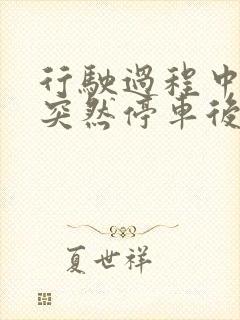 行駛過程中
突然停車後
夏世祥